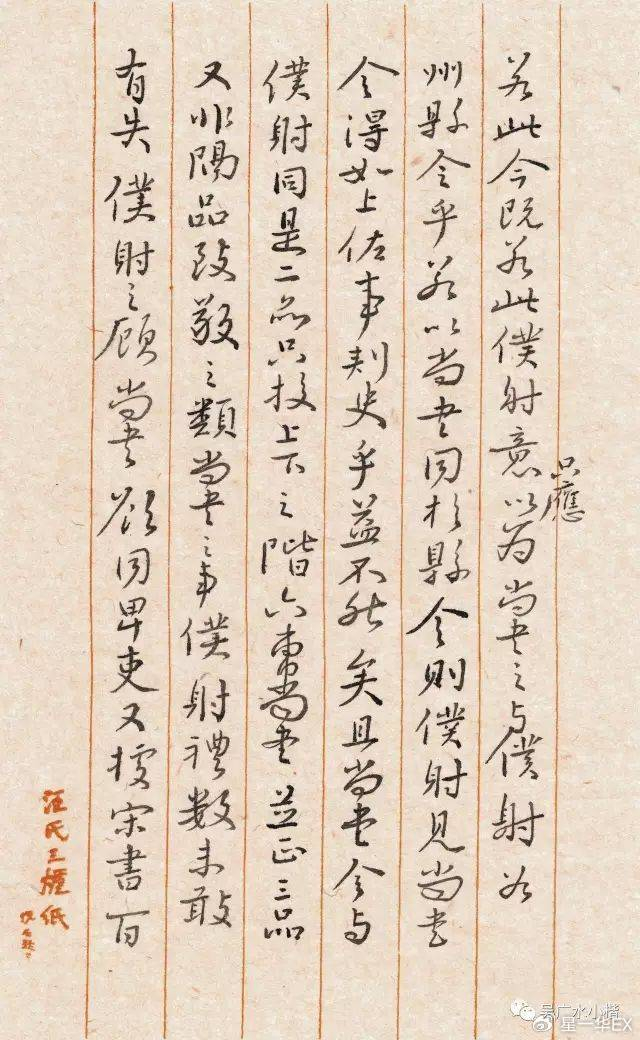 若此今既若此僕射意以为尚書之与僕射若
只應
州縣令乎若以尚書同於縣令則僕射見尚書
令得如上佐事刺史乎益不然矣且尚書令与
僕射同是二品只校上下之階六曹尚書並正三品
又非隔品致敬之類尚書之事僕射禮數未敢
有失僕射之顧尚書欲同卑吏又據宋書百
吴广水小楷
星一华EX